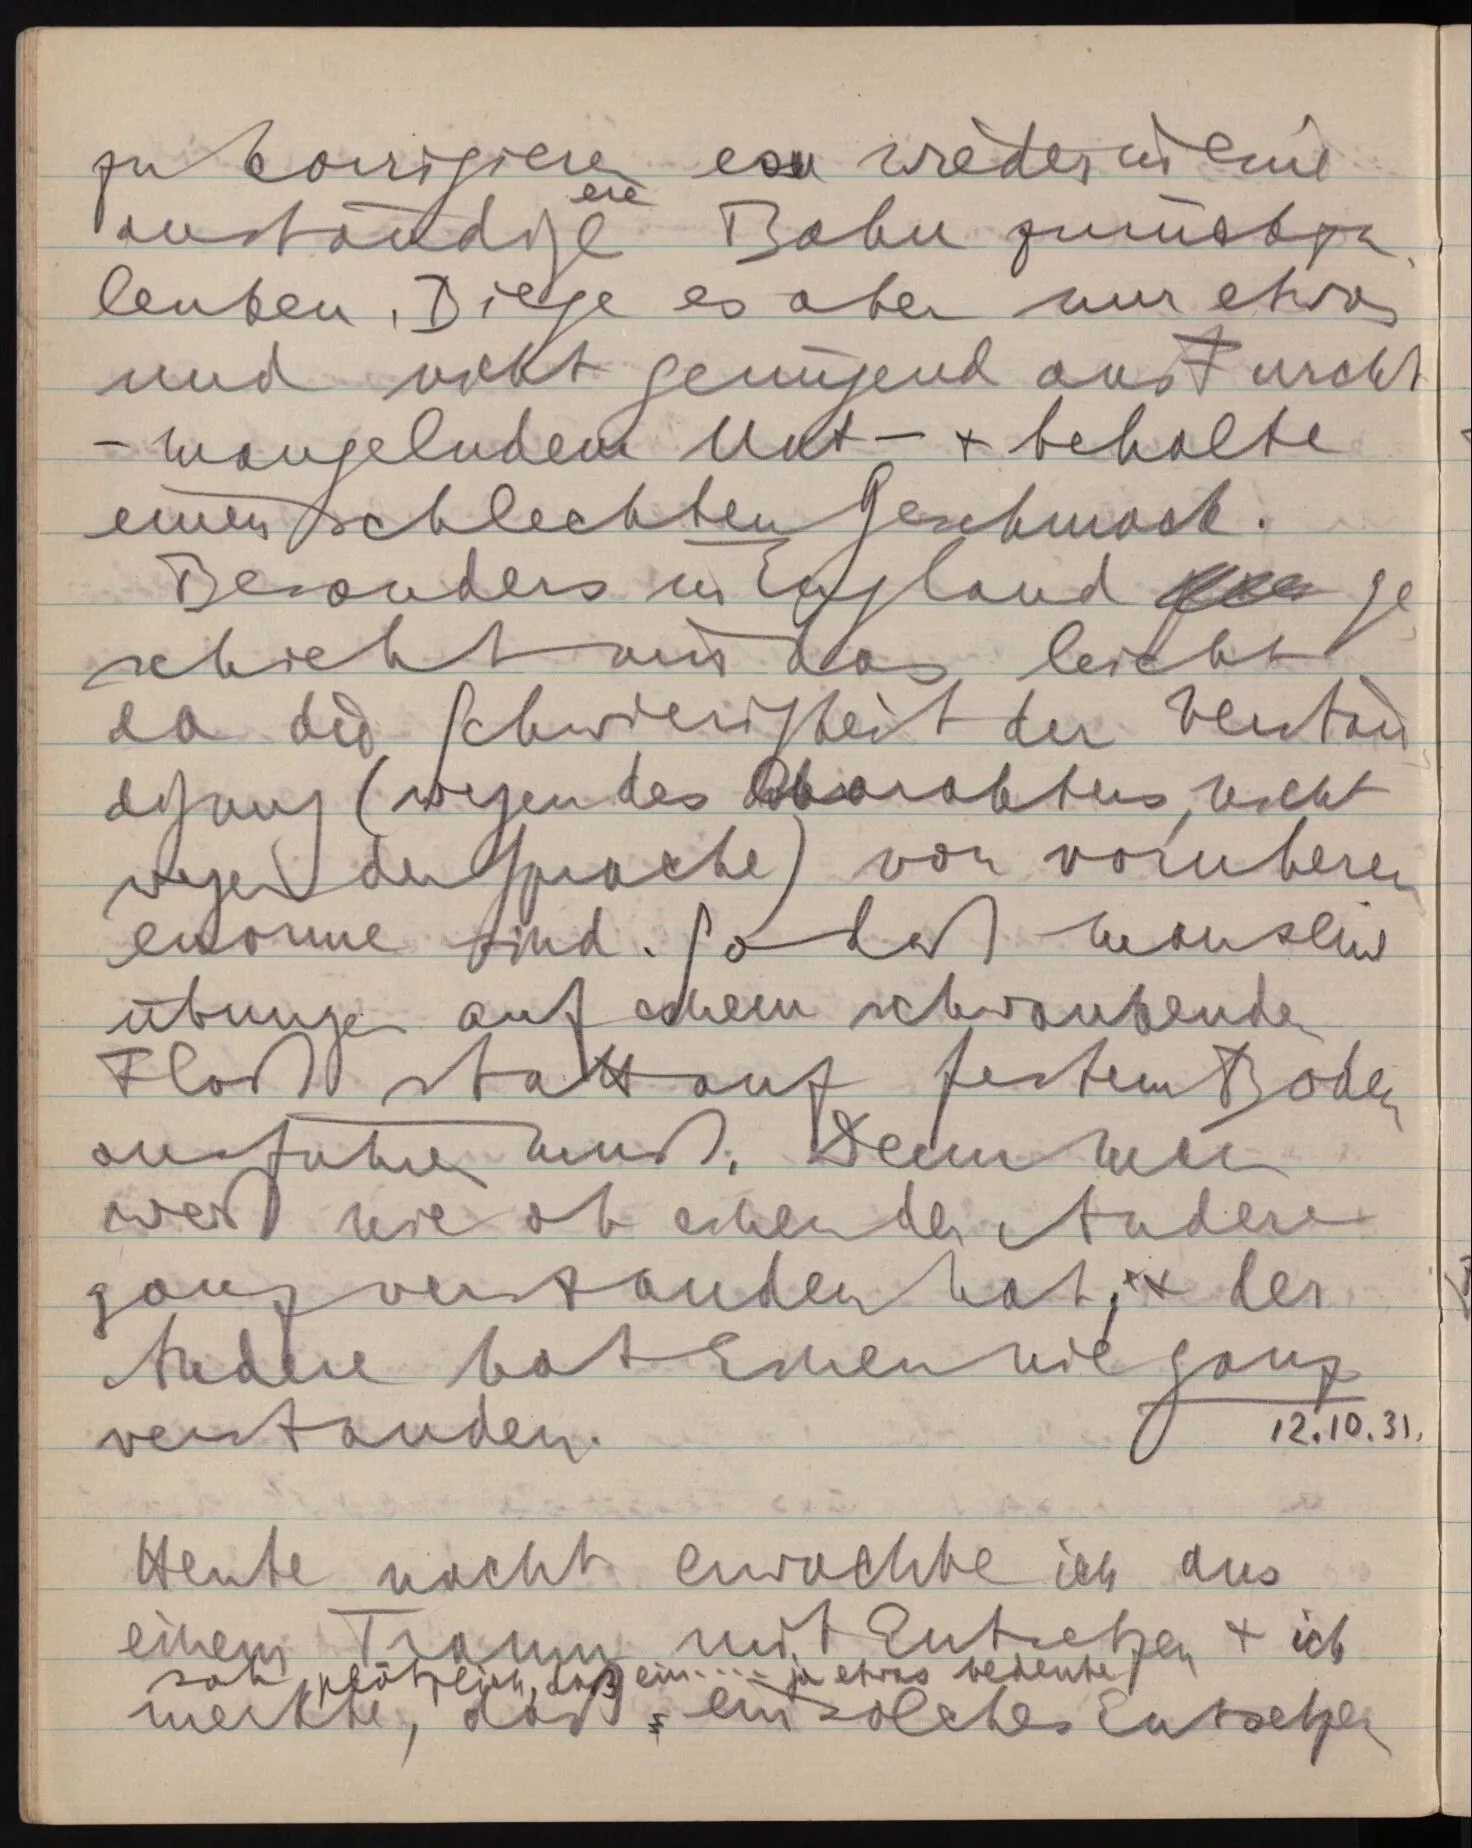 zu korrigieren es wieder in eine
anständigere Bahn zurückzu
lenken. Biege es aber nur etwas
und nicht genügend aus Furcht
– mangelndem Mut – + behalte
einen schlechten Geschmack.
Besonders in England ge
schieht mir das leicht
da die Schwierigkeit der Verstän
digung (wegen des Charakters, nicht
wegen der Sprache) von vornherein
enorme sind. So daß man seine
Übungen auf einem schwankenden
Floß statt auf festem Boden
ausführen muß. Denn man
weiß nie ob einen der Andere
ganz verstanden hat; + der
Andere hat Einen nie ganz
verstanden.
12.10.31.
Heute nacht erwachte ich aus
einem Traum mit Entsetzen + ich
sah plötzlich, daß ein .... ja etwas bedeute
merkte, daß ein solches Entsetzen